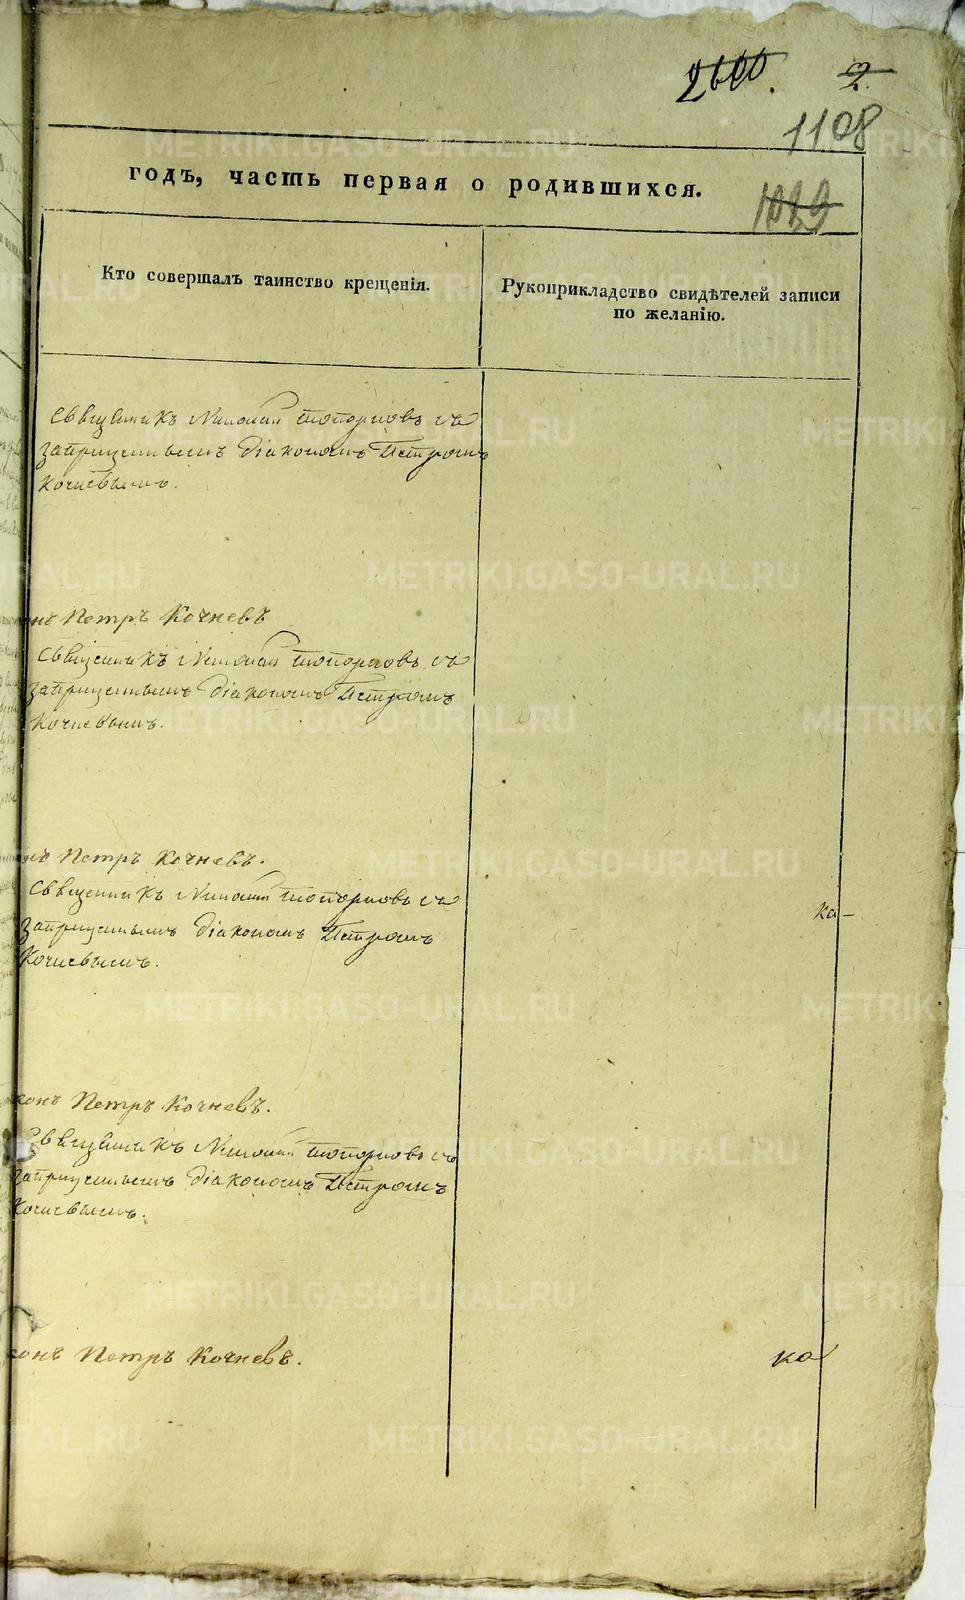 2
1108
годъ, часть первая о родившихся.
Кто совершалъ таинство крещенія.
Рукоприкладство свидѣтелей записи
по желанію.
Священникъ Николай Топорковъ съ
запрещеннымъ Діакономъ Петромъ
Кочневымъ.
онъ Петръ Кочневъ
Священникъ Николай Топорковъ съ
запрещеннымъ Діакономъ Петромъ
Кочневымъ.
нъ Петръ Кочневъ.
Священникъ Николай Топорковъ съ
запрещеннымъ Діакономъ Петромъ
Кочневымъ.
ка-
конъ Петръ Кочневъ.
Священникъ Николай Топорковъ съ
запрещеннымъ Діакономъ Петромъ
Кочневымъ.
конъ Петръ Кочневъ.
ка
METRIKI.GASO-URAL.RU